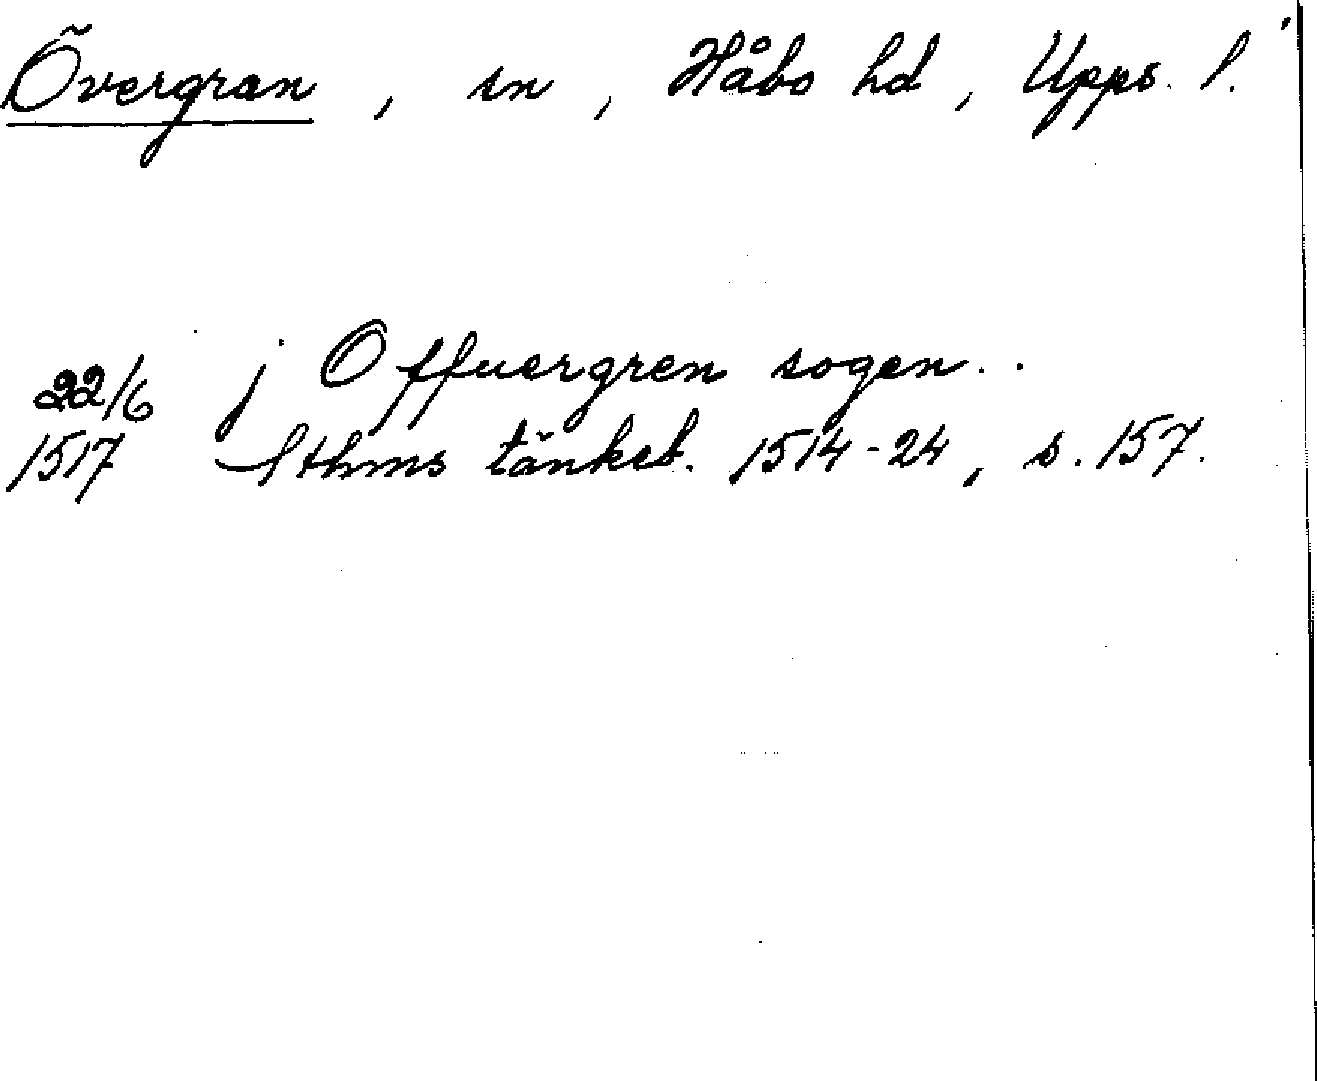 Övergran, sn, Håbo hd, Upps. l.
22/6 j Offuergren sogen..
1517 Sthms tänkeb. 1514-24, s. 157.